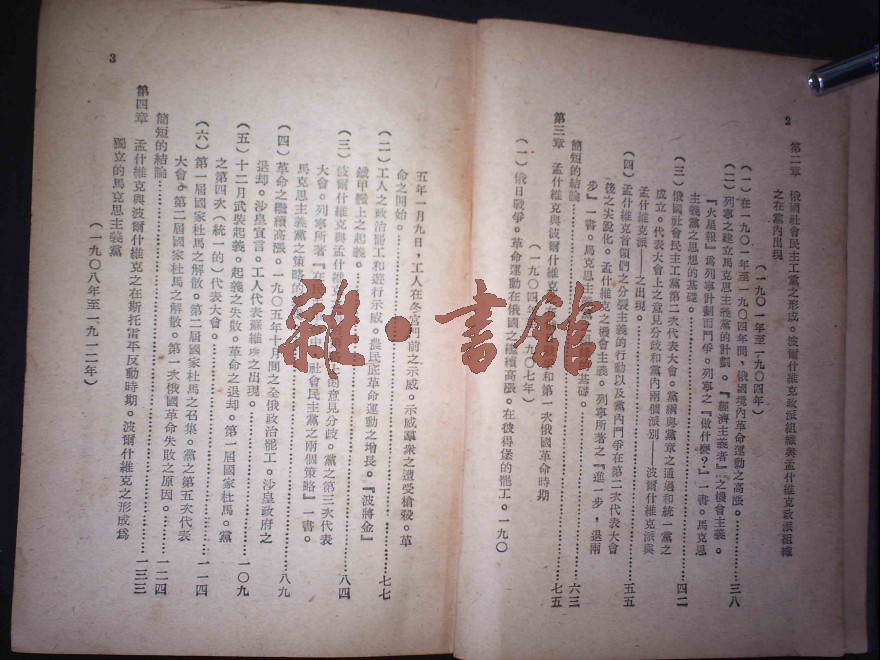 2
第二章　俄國社會民主工黨之形成。波爾什維克政派組織與孟什維克政派組織
之在黨內出現
（一九〇一年至一九〇四年）
（一）在一九〇一年至一九〇四年間，俄國境內革命運動之高漲。…………三八
（二）列寧之建立馬克思主義黨的計劃。『經濟主義者』之機會主義。
『火星報』爲列寧計劃而鬥爭。列寧之『做什麼？』一書。馬克思
主義黨之思想的基礎。…………四二
（三）俄國社會民主工黨第二次代表大會。黨綱與黨章之通過和統一黨之
成立。代表大會上之意見分歧和黨內兩個派別——波爾什維克派與
孟什維克派——之出現。…………五五
（四）孟什維克首領們之分裂主義的行動以及黨內鬥爭在第二次代表大會
後之尖銳化。孟什維克之機會主義。列寧所著之『進一步，退兩
步』一書。馬克思主義黨之　基礎。…………六三
簡短的結論…………七五
第三章　孟什維克與波爾什維　和第一次俄國革命時期
（一九〇四年　九〇七年）
（一）俄日戰爭。革命運動在俄國之繼續高漲。在彼得堡的罷工。一九〇
3
五年一月九日，工人在冬宮門前之示威。示威羣衆之遭受槍殺。革
命之開始。…………七七
（二）工人之政治罷工和遊行示威。農民底革命運動之增長。『波將金』
鐵甲艦上之起義。…………八四
（三）波爾什維克與孟什維　的意見分歧。黨之第三次代表
大會。列寧所著『在民　中社會民主黨之兩個策略』一書。
馬克思主義黨之策略的　…………八九
（四）革命之繼續高漲。一九〇五年十月間之全俄政治罷工。沙皇政府之
退却。沙皇宣言。工人代表蘇維埃之出現。…………一〇九
（五）十二月武裝起義。起義之失敗。革命之退却。第一屆國家杜馬。黨
之第四次（統一的）代表大會。…………一一四
（六）第一屆國家杜馬之解散。第二屆國家杜馬之召集。黨之第五次代表
大會。第二屆國家杜馬之解散。第一次俄國革命失敗之原因。…………一二四
簡短的結論…………一三三
第四章　孟什維克與波爾什維克之在斯托雷平反動時期。波爾什維克之形成爲
獨立的馬克思主義黨
（一九〇八年至一九一二年）
雜·書館